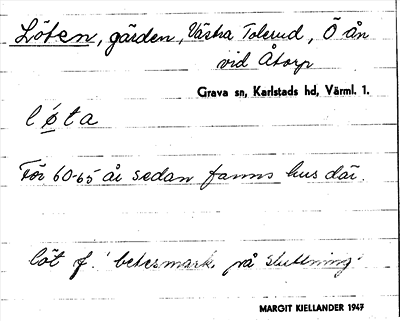 Löten, gärden, Västra Tolerud, Ö ån
vid Åtorp
Grava sn, Karlstads hd, Värml. 1.
løta
För 60-65 år sedan fanns hus där.
löt f. 'betesmark på sluttning'
MARGIT KIELLANDER 1947